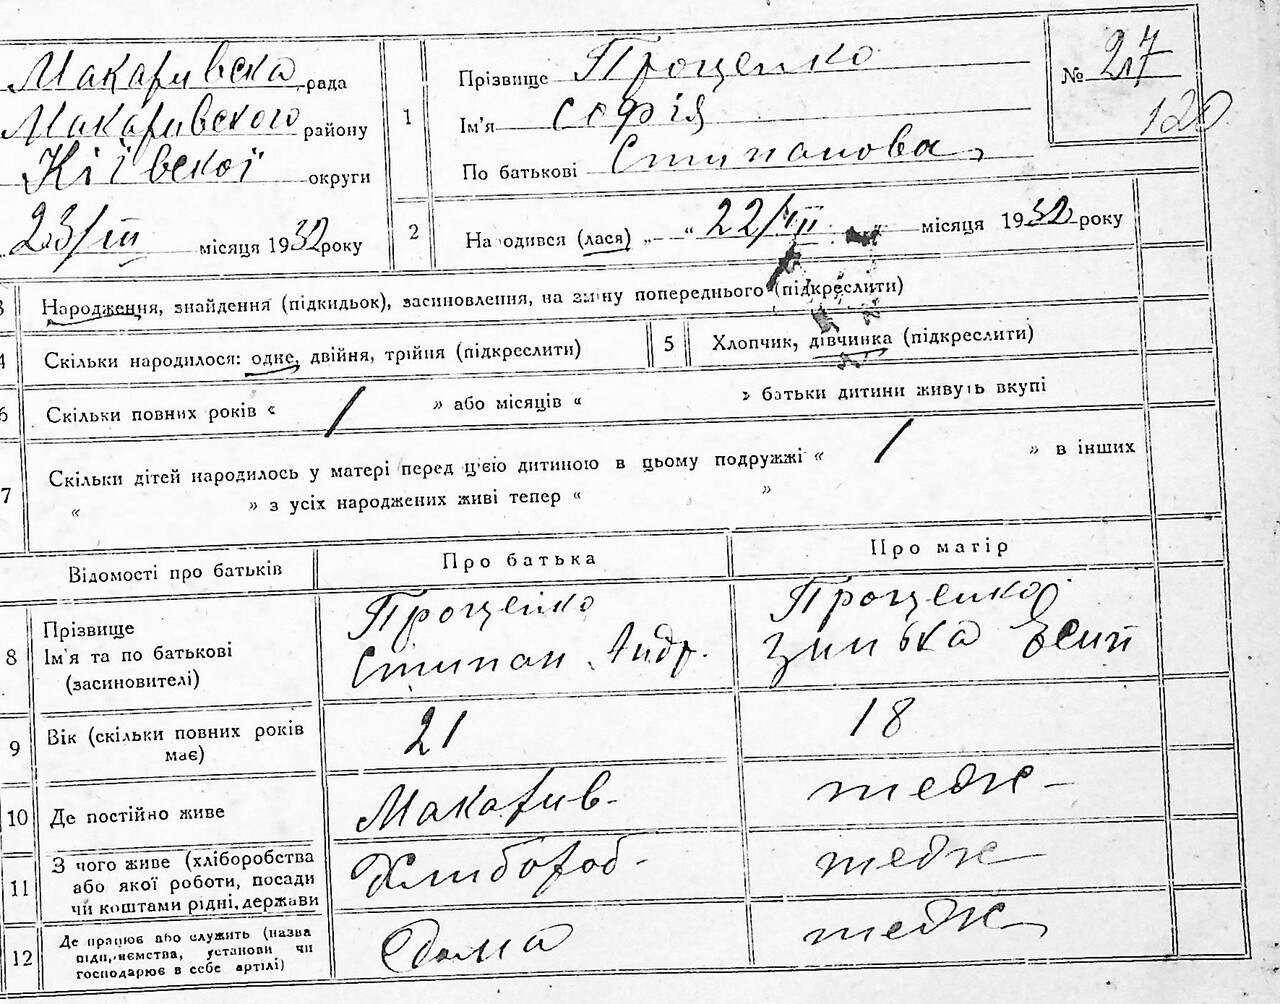 Макаривска рада
Макаривского району
Кіївскої округи
23/III місяця 1932 року
1
Прізвище Проценко
Ім'я Софія
По батькові Стипанова
№ 27
120
2
Народився (лася) „ — “ 22/III місяця 1932 року
3 Народження, знайдення (підкидьок), засиновлення, на зміну попереднього (підкреслити)
4 Скільки народилося: одне, двійня, трійня (підкреслити)
5 Хлопчик, дівчинка (підкреслити)
6 Скільки повних років « / » або місяців « » батьки дитини живуть вкупі
7 Скільки дітей народилось у матері перед ц'єю дитиною в цьому подружжі « / » в інших
« » з усіх народжених живі тепер « »
Відомості про батьків
Про батька
Про матір
8
Прізвище
Ім'я та по батькові
(засиновителі)
Проценко
Стипан Андр.
Проценко
Зинька Есип
9
Вік (скільки повних років
має)
21
18
10 Де постійно живе
Макарив-
тедж-
11
З чого живе (хліборобства
або якої роботи, посади
чи коштами рідні, держави
Хлибороб-
тедж
12
Де працює або служить (назва
підприємства, установи чи
господарює в себе артілі)
Дома
тедж